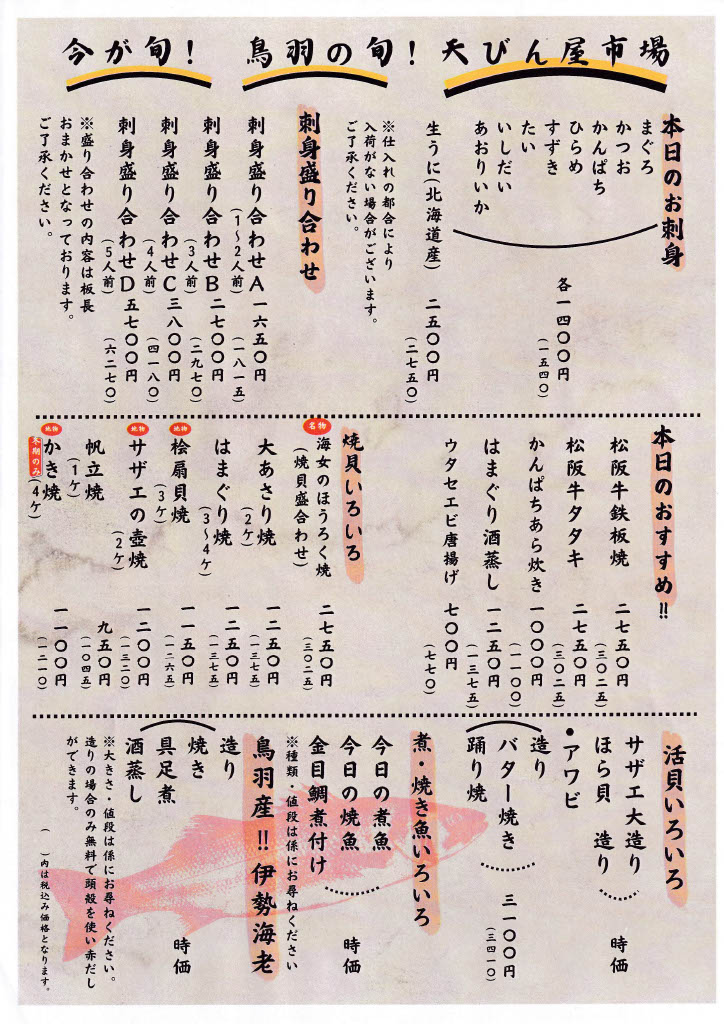 今が旬! 鳥羽の旬! 天びん屋市場
本日のお刺身
まぐろ
かつお
かんぱち
ひらめ
すずき
たい
いしだい
あおりいか
各一四〇〇円
(一五四〇)
生うに(北海道産) 二五〇〇円
(二七五〇)
※仕入れの都合により
入荷がない場合がございます。
ご了承ください。
刺身盛り合わせ
刺身盛り合わせA 一六五〇円
(1〜2人前) (一八一五)
刺身盛り合わせB 二七〇〇円
(3人前) (二九七〇)
刺身盛り合わせC 三八〇〇円
(4人前) (四一八〇)
刺身盛り合わせD 五七〇〇円
(5人前) (六二七〇)
※盛り合わせの内容は板長
おまかせとなっております。
ご了承ください。
本日のおすすめ!!
松阪牛鉄板焼 二七五〇円
(三〇二五)
松阪牛タタキ 二七五〇円
(三〇二五)
かんぱちあら炊き 一〇〇〇円
(一一〇〇)
はまぐり酒蒸し 一二五〇円
(一三七五)
ウタセエビ唐揚げ 七〇〇円
(七七〇)
焼貝いろいろ
名物 海女のほうろく焼 二七五〇円
(焼貝盛合わせ) (三〇二五)
大あさり焼 一二五〇円
(2ケ) (一三七五)
はまぐり焼 一二五〇円
(3〜4ケ) (一三七五)
地物 桧扇貝焼 一一五〇円
(3ケ) (一二六五)
地物 サザエの壺焼 一二〇〇円
(2ケ) (一三二〇)
帆立焼 九五〇円
(1ケ) (一〇四五)
地物 かき焼 一一〇〇円
冬期のみ (4ケ) (一二一〇)
活貝いろいろ
サザエ大造り
ほら貝 造り
時価
●アワビ
造り
バター焼き
踊り焼
三一〇〇円
(三四一〇)
煮・焼き魚いろいろ
今日の煮魚
今日の焼魚
金目鯛煮付け
時価
※種類・値段は係にお尋ねください
鳥羽産!!伊勢海老
造り
焼き
具足煮
酒蒸し
時価
※大きさ・値段は係にお尋ねください。
造りの場合のみ無料で頭殻を使い赤だし
ができます。
( )内は税込み価格となります。